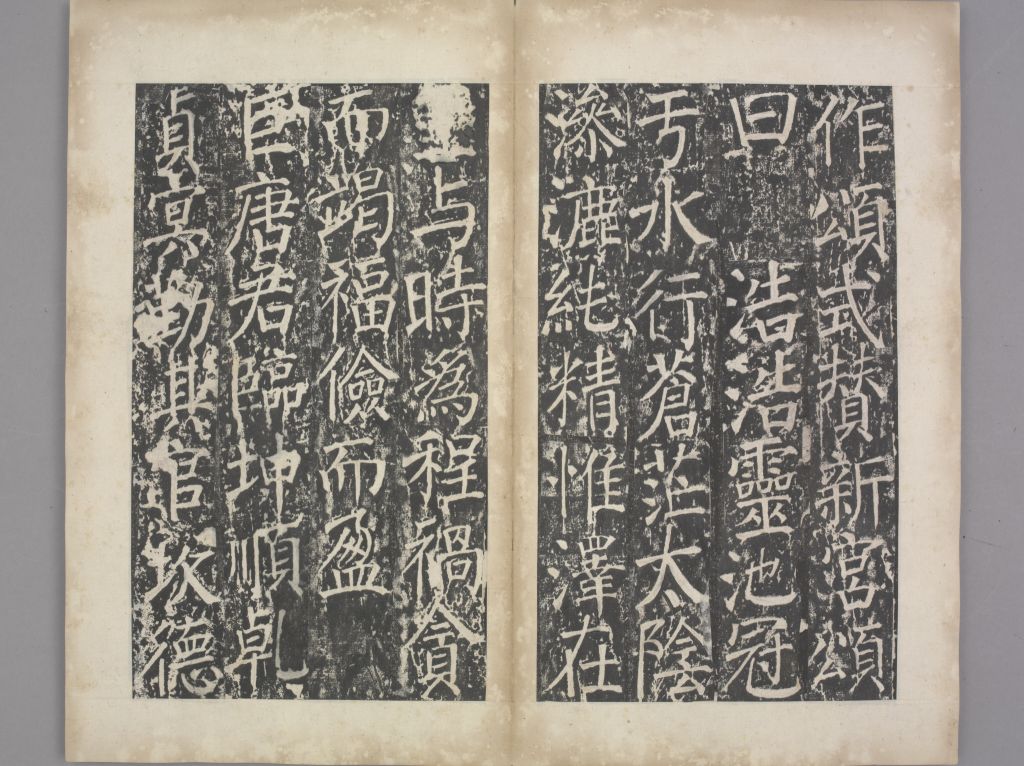 作頌式賛新宮頌
曰浩浩靈池冠
亐水行蒼茫太陰
滲漉純精惟澤在
与時為程禍貪
而竭福儉而盈
巨唐君臨坤順乾
貞冥勤其官坎德